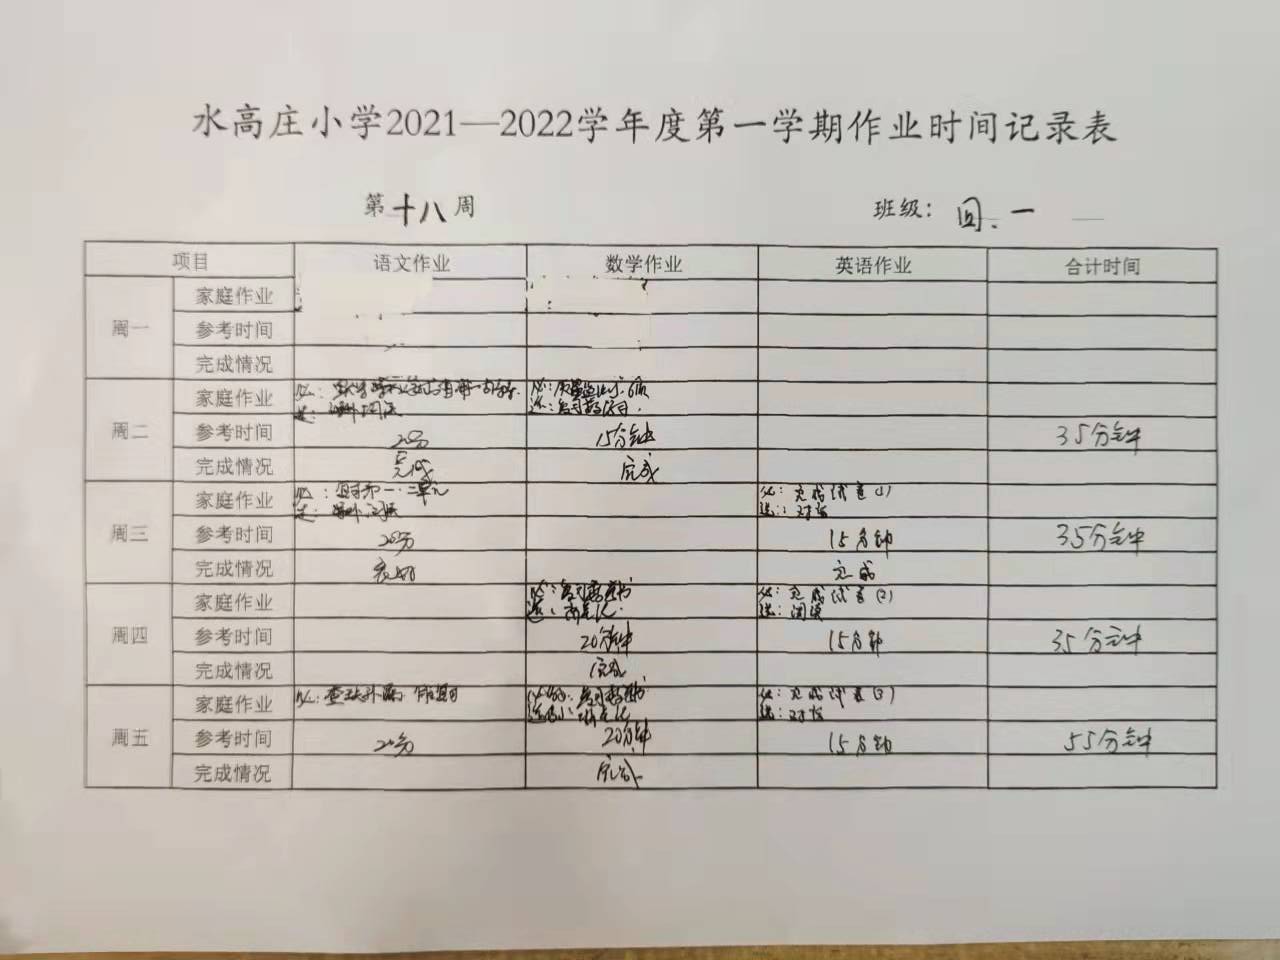 水高庄小学2021—2022学年度第一学期作业时间记录表
第十八周 班级：四.一
项目 语文作业 数学作业 英语作业 合计时间
周一
家庭作业
参考时间
完成情况
周二
家庭作业 必： 必：
选：课外阅读 选：复习
参考时间 20分 15分钟 35分钟
完成情况 完成 完成
周三
家庭作业 必：复习第一.二单元 必：完成试卷(1)
选：课外阅读 选：对话
参考时间 20分 15分钟 35分钟
完成情况 良好 完成
周四
家庭作业 必：复习 必：完成试卷(2)
选： 选：阅读
参考时间 20分钟 15分钟 35分钟
完成情况 完成
周五
家庭作业 必：查缺补漏 必 必：完成试卷(3)
选：对话
参考时间 20分 20分钟 15分钟 55分钟
完成情况 完成